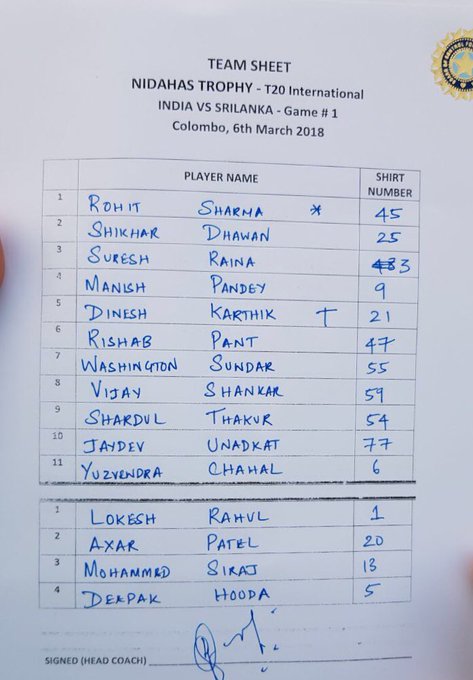 TEAM SHEET
NIDAHAS TROPHY - T20 International
INDIA VS SRILANKA - Game # 1
Colombo, 6th March 2018
PLAYER NAME SHIRT NUMBER
1 ROHIT SHARMA * 45
2 SHIKHAR DHAWAN 25
3 SURESH RAINA 3
4 MANISH PANDEY 9
5 DINESH KARTHIK T 21
6 RISHAB PANT 47
7 WASHINGTON SUNDAR 55
8 VIJAY SHANKAR 59
9 SHARDUL THAKUR 54
10 JAYDEV UNADKAT 77
11 YUZVENDRA CHAHAL 6
1 LOKESH RAHUL 1
2 AXAR PATEL 20
3 MOHAMMED SIRAJ 13
4 DEEPAK HOODA 5
SIGNED (HEAD COACH)